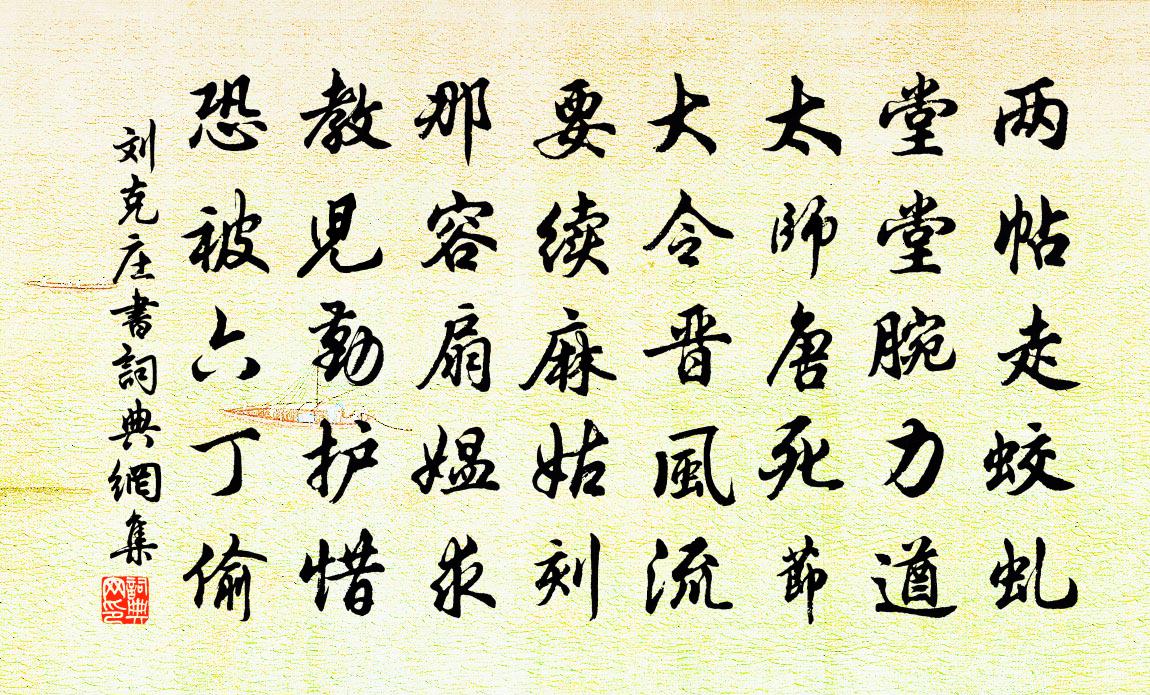 两帖走蛟虬
堂堂腕力遒
太師唐死節
大令晋風流
要续麻姑刻
那容扇媪求
教児勤护惜
恐被六丁偷
刘克庄書詞典網集
詞典
网印